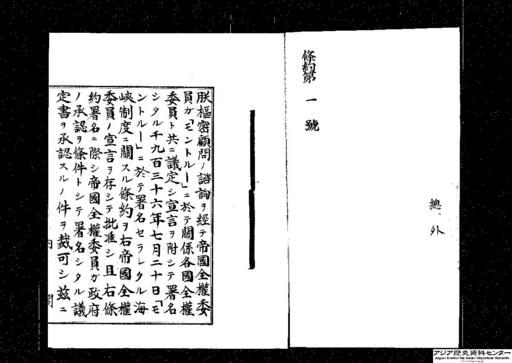 條約第一號
總、外
朕樞密顧問ノ諮詢ヲ經テ帝國全權委
員ガ「モントルー」ニ於テ關係各國全權
委員ト共ニ議定シ宣言ヲ附シテ署名
シタル千九百三十六年七月二十日「モ
ントルー」ニ於テ署名セラレタル海
峽制度ニ關スル條約ヲ右帝國全權
委員ノ宣言ヲ存シテ批准シ且右條
約署名ニ際シ帝國全權委員ガ政府
ノ承認ヲ條件トシテ署名シタル議
定書ヲ承認スルノ件ヲ裁可シ茲ニ
内 閣
アジア歴史資料センター
Japan Center for Asian Historical Records